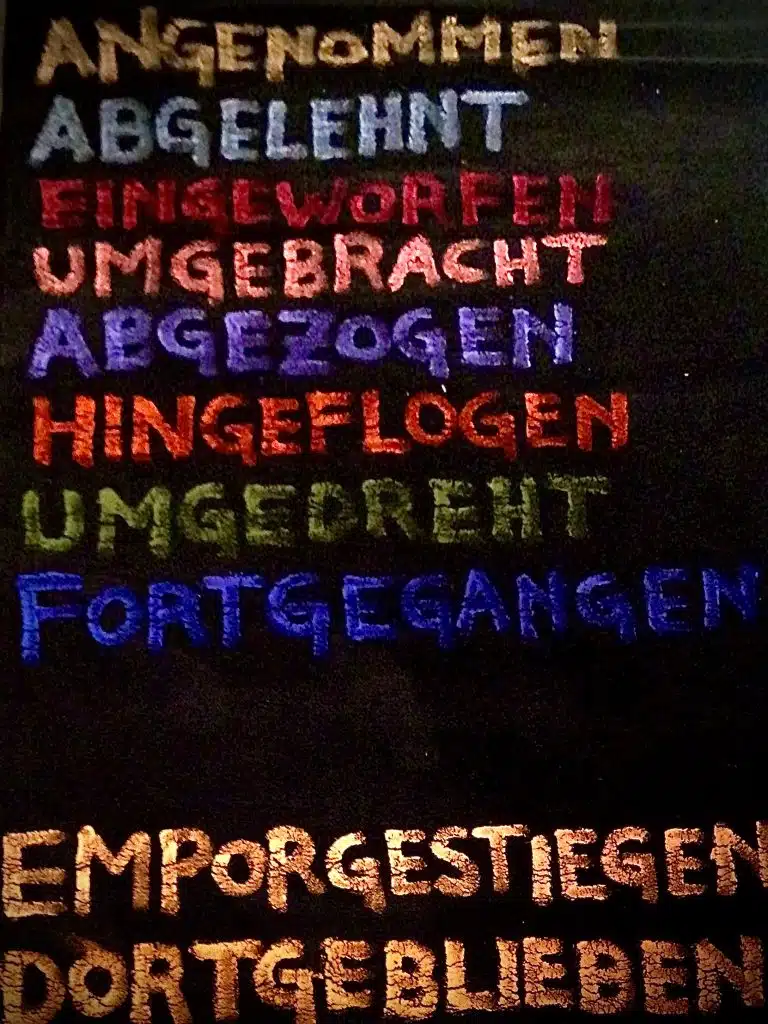 ANGENOMMEN
ABGELEHNT
EINGEWORFEN
UMGEBRACHT
ABGEZOGEN
HINGEFLOGEN
UMGEDREHT
FORTGEGANGEN
EMPORGESTIEGEN
DORTGEBLIEBEN